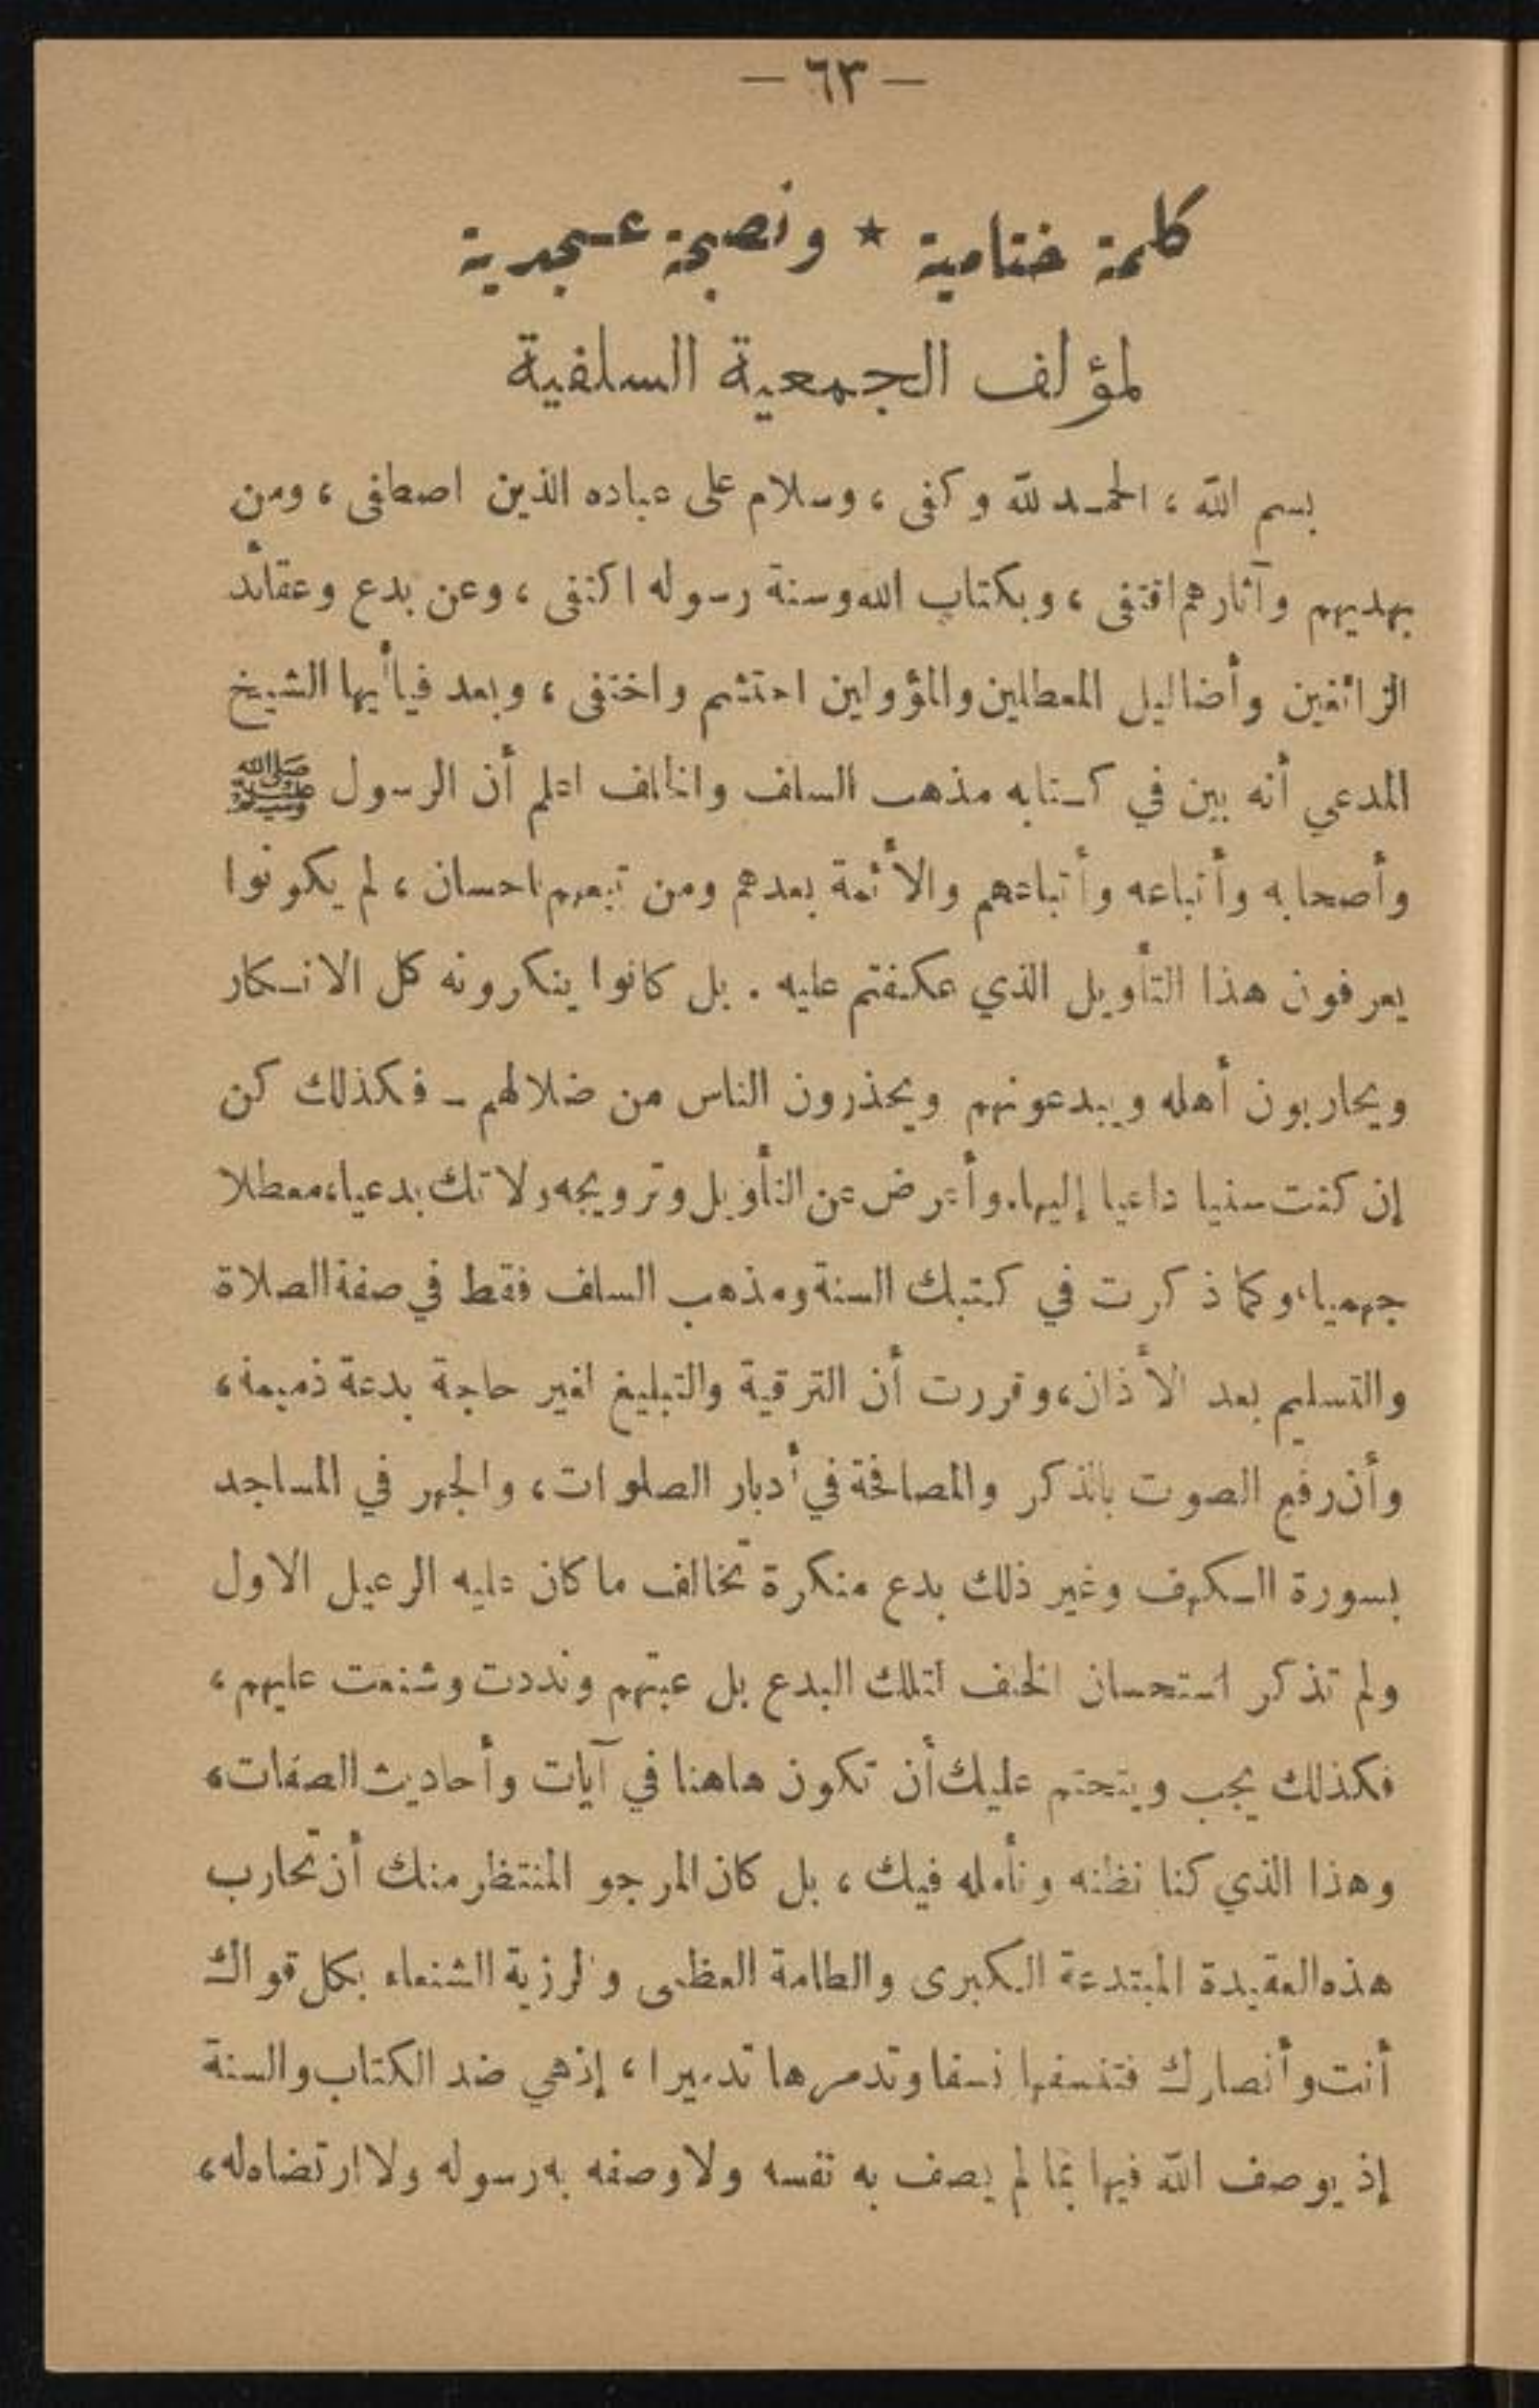 — ٦٣ —
كلمة ختامية ★ ونصيحة عسجدية
لمؤلف الجمعية السلفية
بسم الله ، الحمد لله وكفى ، وسلام على عباده الذين اصطفى ، ومن
بهديهم وآثارهم اقتفى ، وبكتاب الله وسنة رسوله اكتفى ، وعن بدع وعقائد
الزائفين وأضاليل المعطلين والمؤولين احتشم واختفى ، وبعد فيا أيها الشيخ
المدعي أنه بين في كتابه مذهب السلف والخلف اعلم أن الرسول ﷺ
وأصحابه وأتباعه وأتباعهم والأئمة بعدهم ومن تبعهم باحسان ، لم يكونوا
يعرفون هذا التأويل الذي عكفتم عليه . بل كانوا ينكرونه كل الانكار
ويحاربون أهله ويبدعونهم ويحذرون الناس من ضلالهم ـ فكذلك كن
إن كنت سنيا داعيا إليها، وأعرض عن التأويل وترويجه ولا تك بدعيا، معطلا
جهميا، وكما ذكرت في كتبك السنة ومذهب السلف فقط في صفة الصلاة
والتسليم بعد الأذان، وقررت أن الترقية والتبليغ لغير حاجة بدعة ذميمة،
وأن رفع الصوت بالذكر والمصافحة في أدبار الصلوات، والجهر في المساجد
بسورة الكهف وغير ذلك بدع منكرة تخالف ما كان عليه الرعيل الاول
ولم تذكر استحسان الخلف لتلك البدع بل عبتهم ونددت وشنعت عليهم،
فكذلك يجب ويتحتم عليك أن تكون هاهنا في آيات وأحاديث الصفات،
وهذا الذي كنا نظنه ونأمله فيك ، بل كان المرجو المنتظر منك أن تحارب
هذه العقيدة المبتدعة الكبرى والطامة العظمى والرزية الشنعاء بكل قواك
أنت وأنصارك فتنسفها نسفا وتدمرها تدميرا ، إذ هي ضد الكتاب والسنة
إذ يوصف الله فيها بما لم يصف به نفسه ولا وصفه به رسوله ولا ارتضاه له،